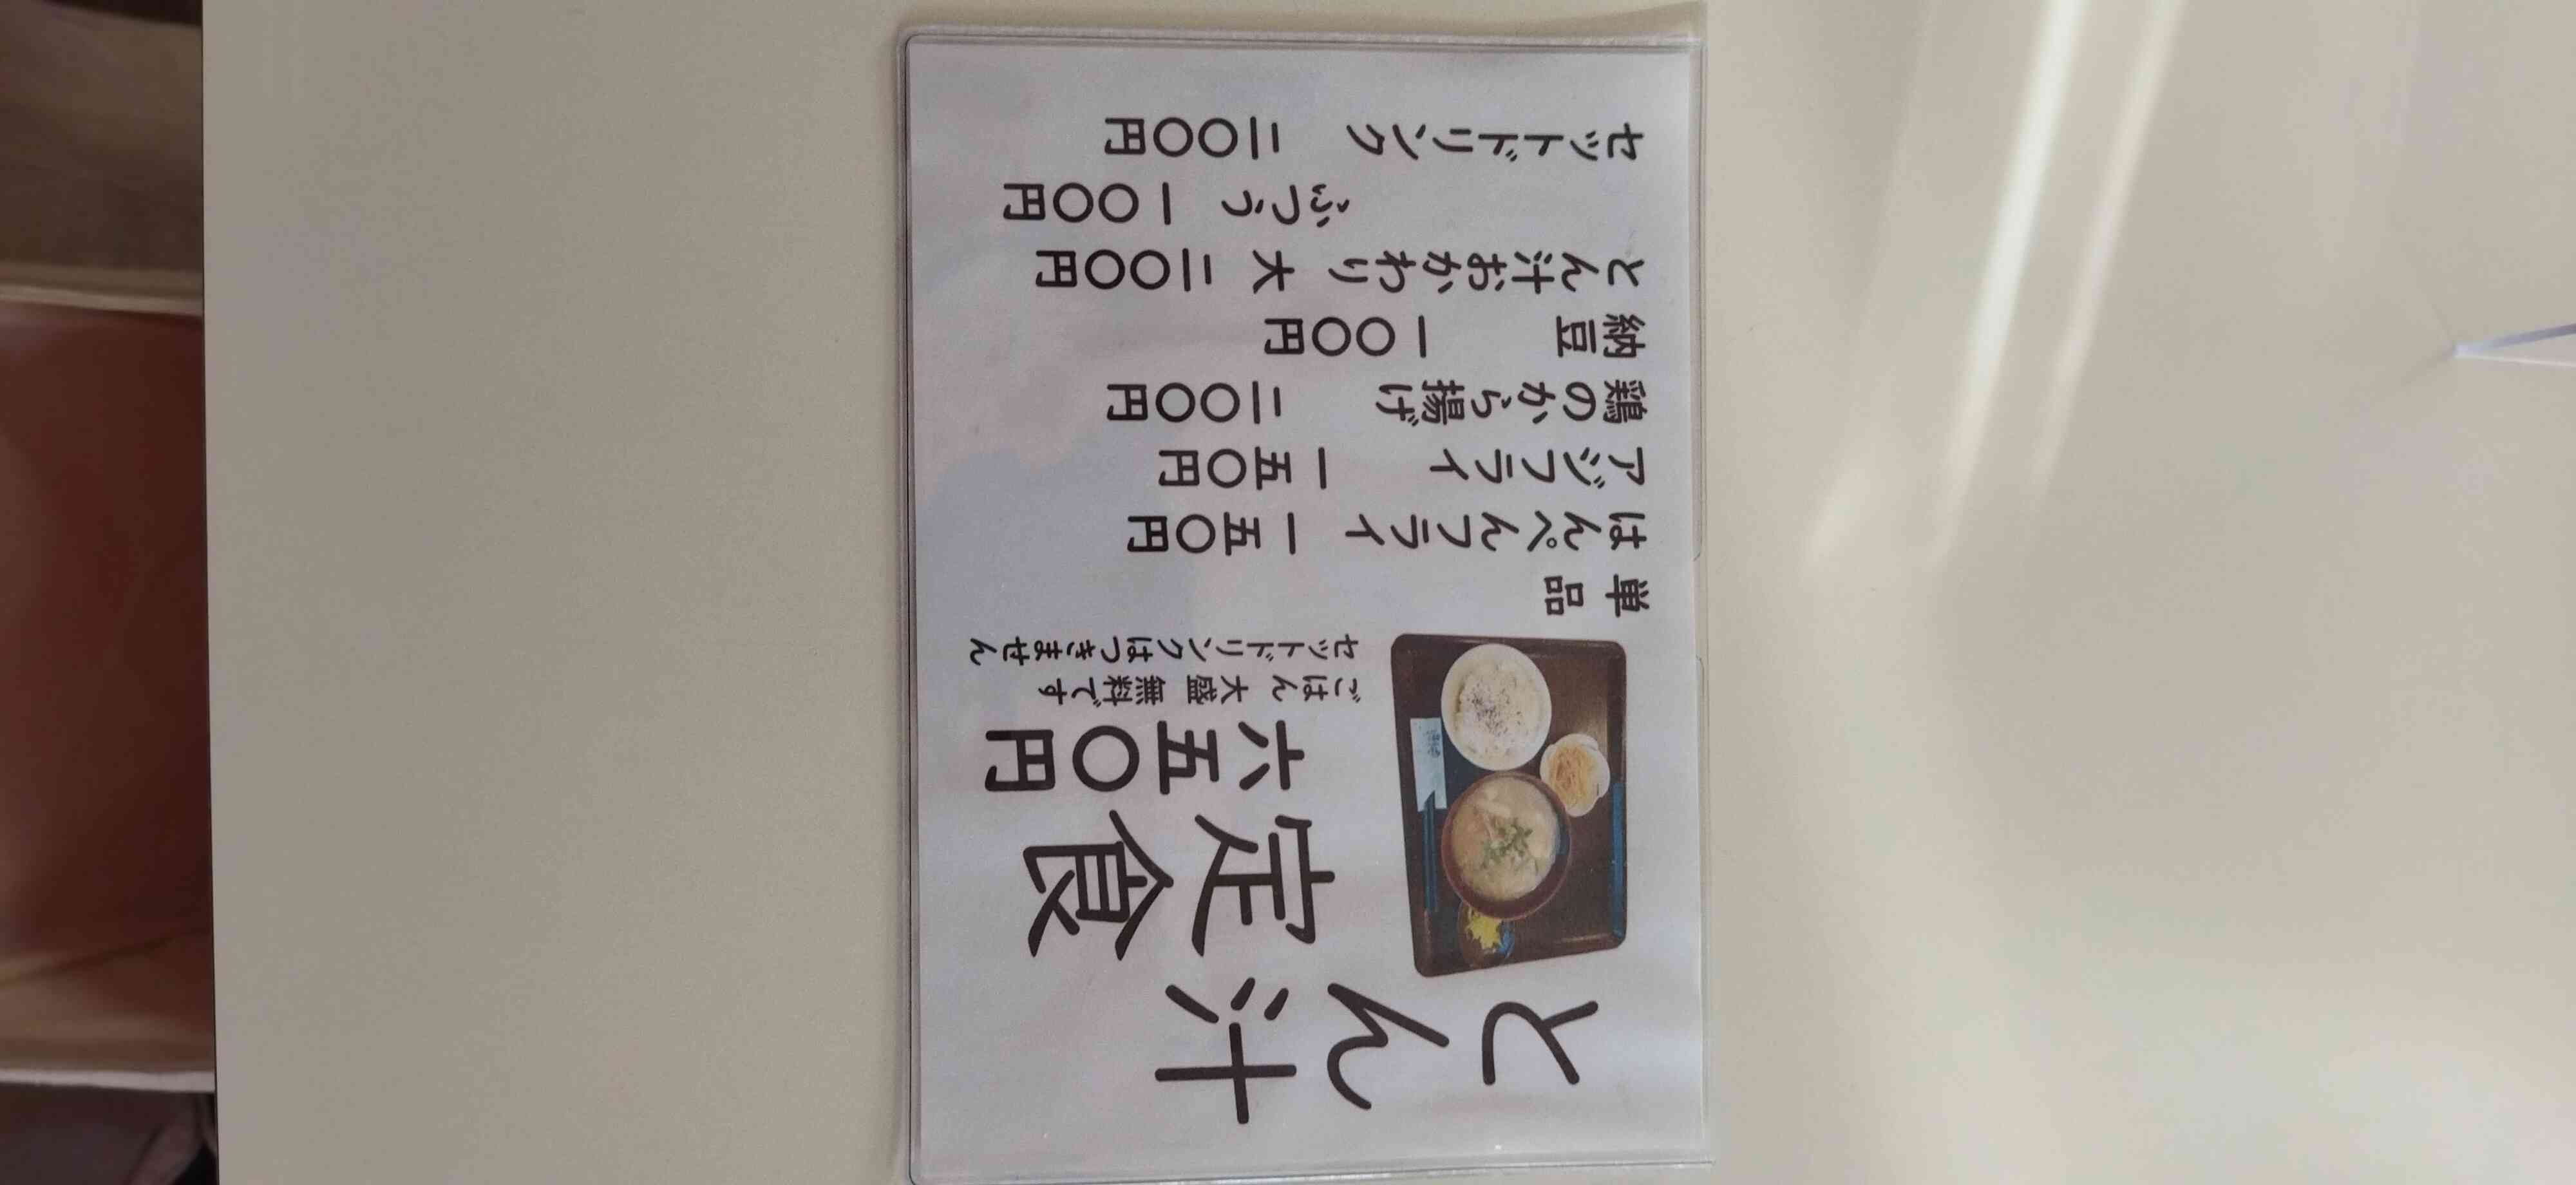 とん汁
定食
六五〇円
ごはん 大盛 無料です
セットドリンクはつきません
単品
はんぺんフライ 一五〇円
アジフライ 一五〇円
鶏のから揚げ 二〇〇円
納豆 一〇〇円
とん汁おかわり 大 二〇〇円
ふつう 一〇〇円
セットドリンク 二〇〇円